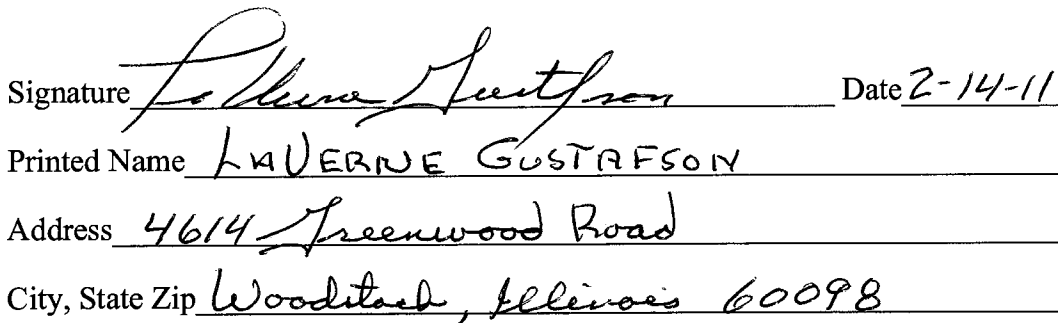 Signature LaVerne Gustafson Date 2-14-11
Printed Name LAVERNE GUSTAFSON
Address 4614 Greenwood Road
City, State Zip Woodstock, Illinois 60098